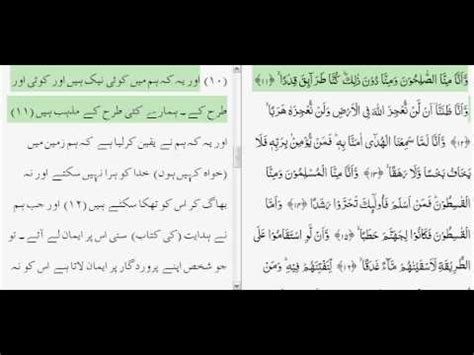 وَّاَنَّا مِنَّا الصّٰلِحُوْنَ وَمِنَّا دُوْنَ ذٰلِكَ ؕ كُنَّا طَرَآئِقَ قِدَدًا ﴿۱۱﴾
وَّاَنَّا ظَنَنَّاۤ اَنْ لَّنْ نُّعْجِزَ اللّٰهَ فِى الْاَرْضِ وَلَنْ نُّعْجِزَهٗ هَرَبًا
﴿۱۲﴾ وَّاَنَّا لَمَّا سَمِعْنَا الْهُدٰٓى اٰمَنَّا بِهٖ ؕ فَمَنْ يُّؤْمِنْۢ بِرَبِّهٖ فَلَا
يَخَافُ بَخْسًا وَّلَا رَهَقًا ﴿۱۳﴾ وَّاَنَّا مِنَّا الْمُسْلِمُوْنَ وَمِنَّا
الْقٰسِطُوْنَ ؕ فَمَنْ اَسْلَمَ فَاُولٰٓئِكَ تَحَرَّوْا رَشَدًا ﴿۱۴﴾ وَاَمَّا
الْقٰسِطُوْنَ فَكَانُوْا لِجَهَنَّمَ حَطَبًا ﴿۱۵﴾ وَّاَنْ لَّوِ اسْتَقَامُوْا عَلَى
الطَّرِيْقَةِ لَاَسْقَيْنٰهُمْ مَّآءً غَدَقًا ﴿۱۶﴾ لِّنَفْتِنَهُمْ فِيْهِ ؕ وَمَنْ
(۱۰) اور یہ کہ ہم میں کوئی نیک ہیں اور کوئی اور
طرح کے۔ ہمارے کئی طرح کے مذہب ہیں (۱۱)
اور یہ کہ ہم نے یقین کرلیا ہے کہ ہم زمین میں
(خواہ کہیں ہوں) خدا کو ہرا نہیں سکتے اور نہ
بھاگ کر اس کو تھکا سکتے ہیں (۱۲) اور جب ہم
نے ہدایت (کی کتاب) سنی اس پر ایمان لے آئے۔ تو
جو شخص اپنے پروردگار پر ایمان لاتا ہے اس کو نہ